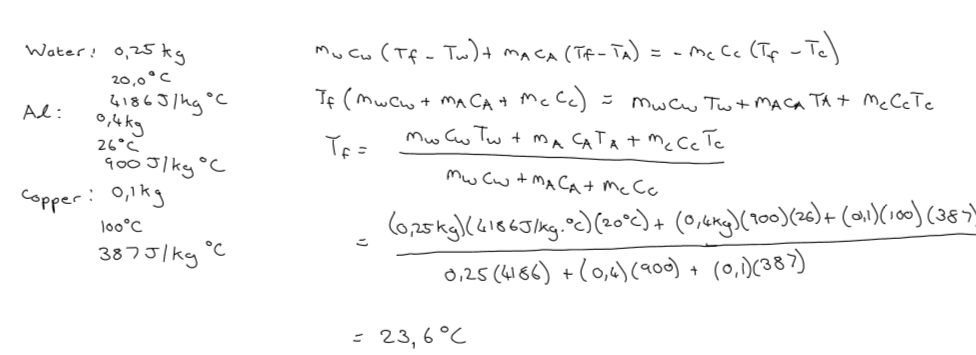 Water: 0,25 kg
20,0°C
4186 J/kg °C
Al: 0,4kg
26°C
900 J/kg °C
Copper: 0,1kg
100°C
387 J/kg °C
mwcw (Tf - Tw) + mAcA (Tf - TA) = - mccc (Tf - Tc)
Tf (mwcw + mAcA + mccc) = mwcwTw + mAcATA + mcccTc
Tf = mwcwTw + mAcATA + mcccTc
mwcw + mAcA + mccc
= (0,25kg)(4186J/kg.°C)(20°C) + (0,4kg)(900)(26) + (0,1)(100)(387)
0,25(4186) + (0,4)(900) + (0,1)(387)
= 23,6°C